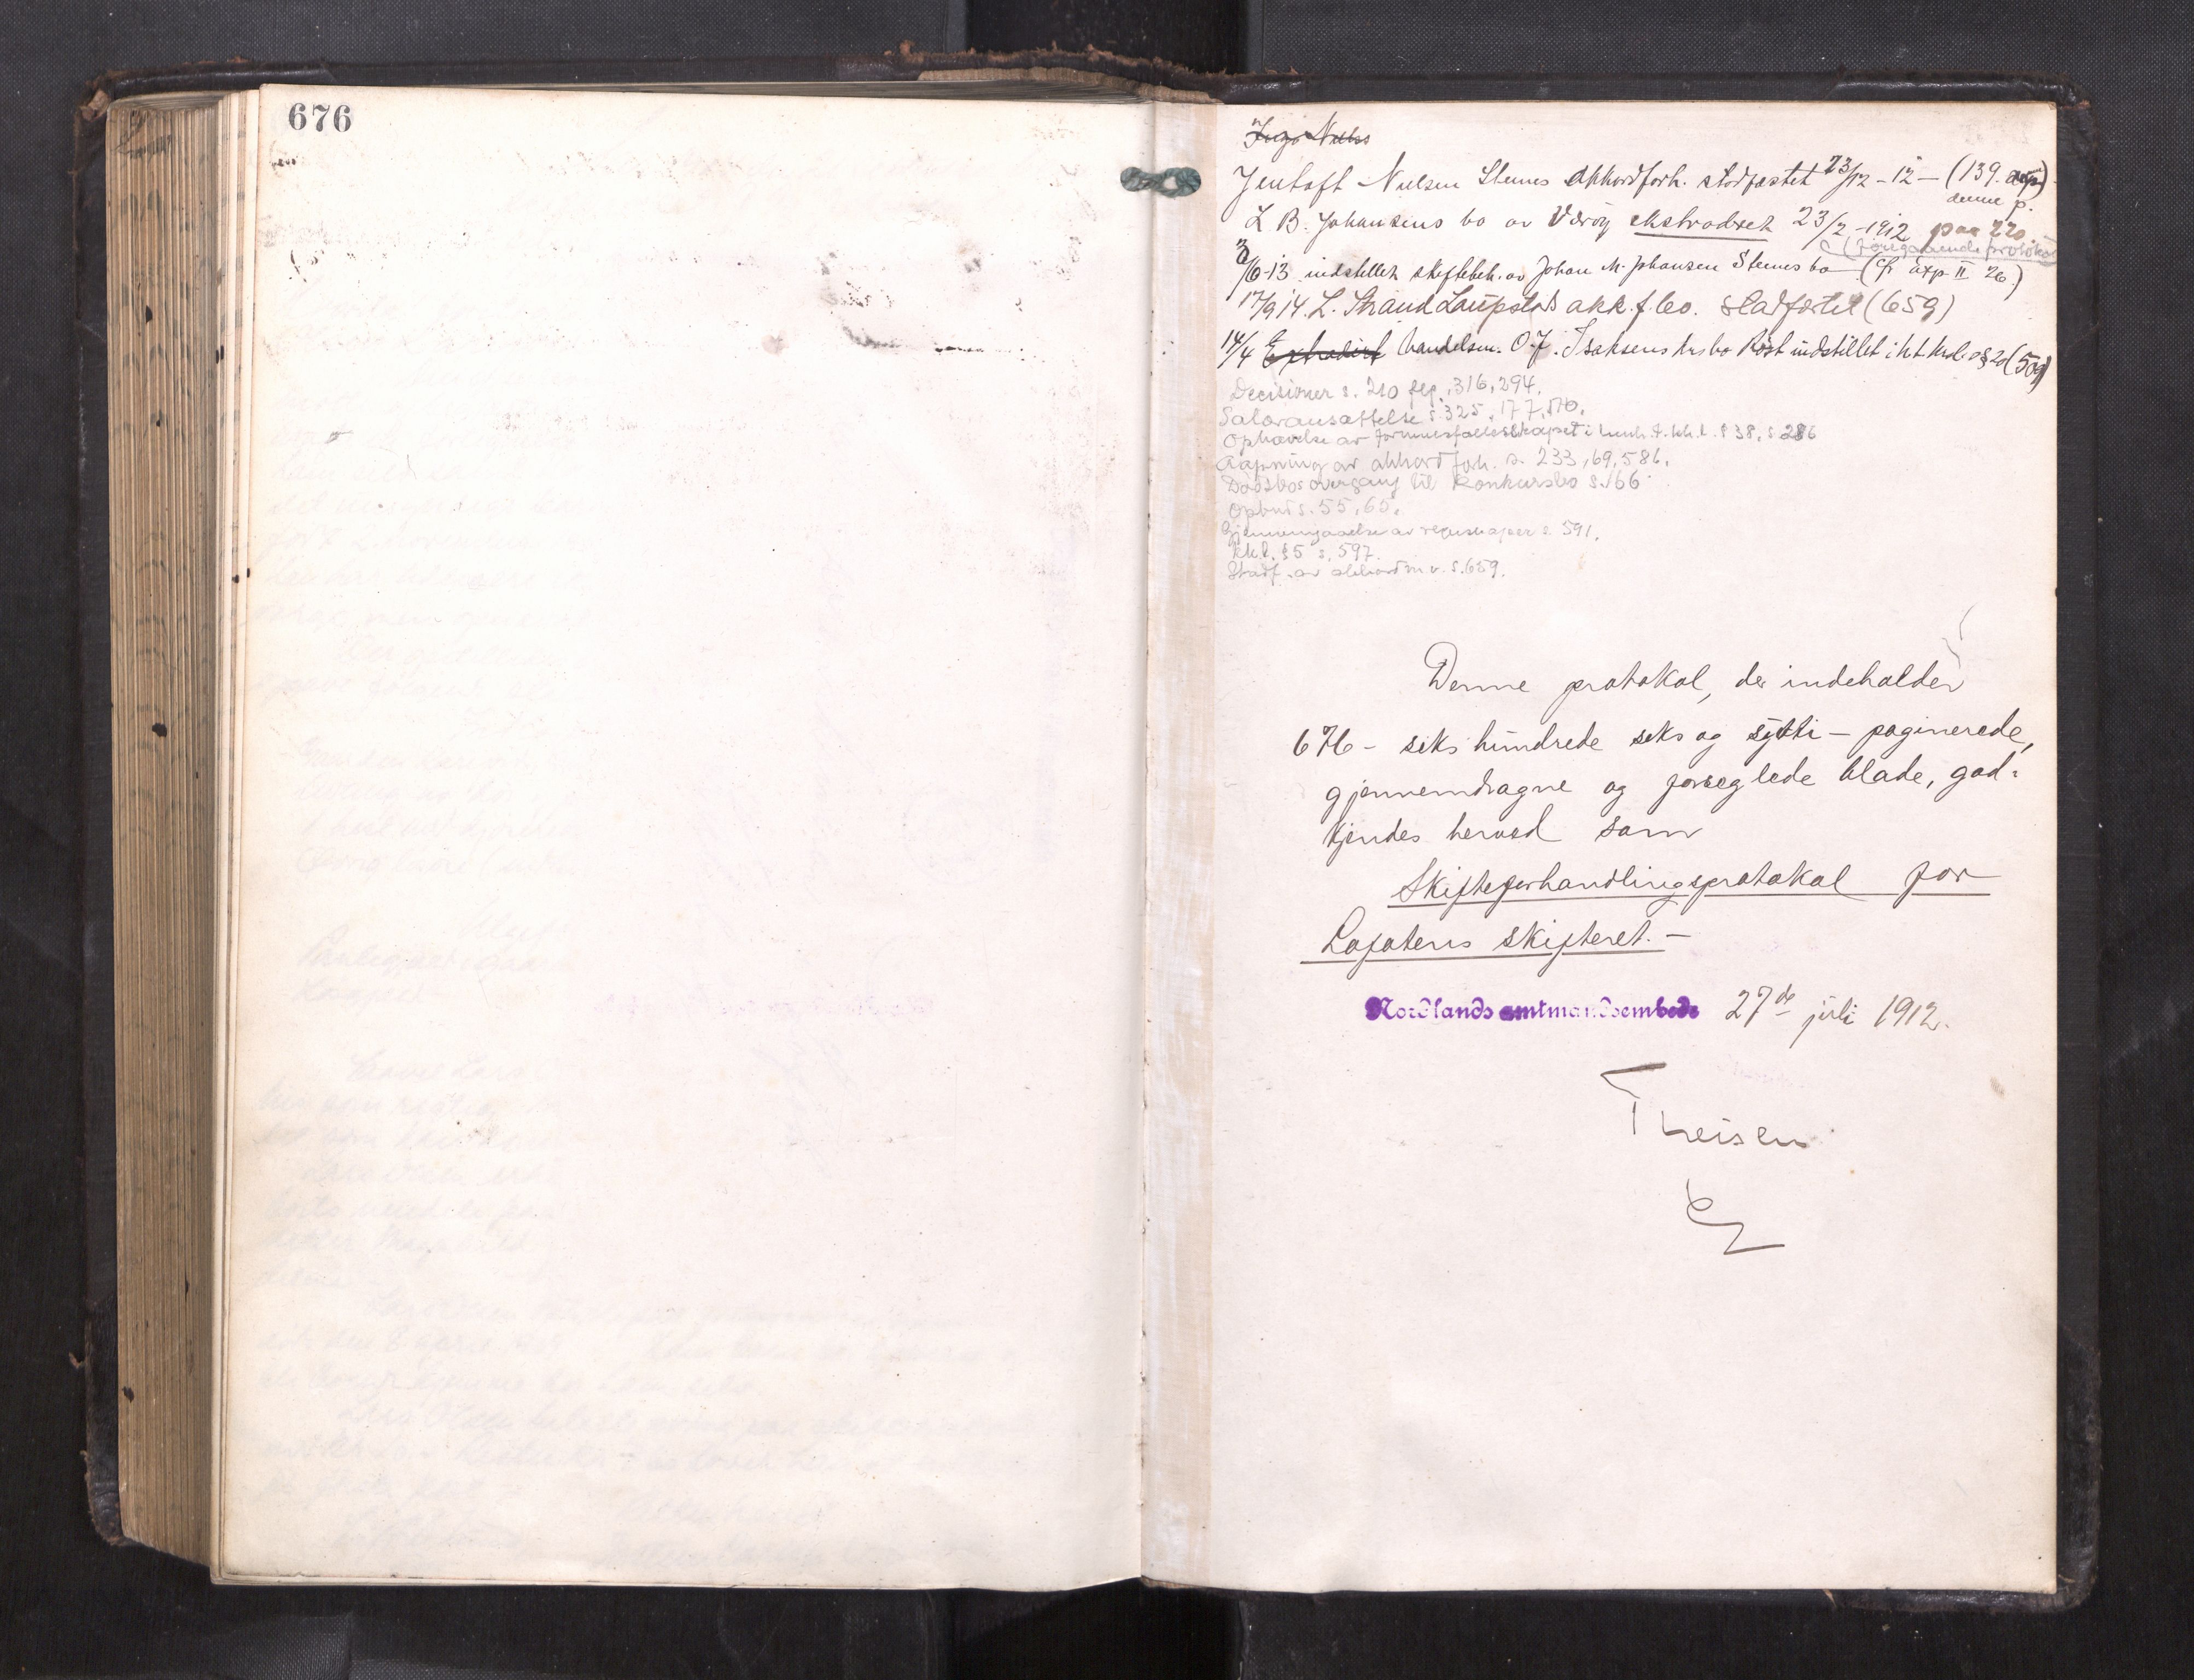 676
Jentoft Nielsen Stemes akkordforh. stadfæstet 23/12 - 12 - (139.
denne p.
L B. Johansens bo av Værøy ekstraderet 23/2 - 1912 paa 220.
(foregaaende protokol
3/6-13 indstillet skiftebeh. av Johan M. Johansen Stemes bo (cfr exp II 26)
17/9 14. L. Strand Laupstad akk.f. bo. stadfæstet (659)
14/4 Extradert handelsm. O.J. Isaksens krs bo Røst indstillet i h.t. kl. § 20 (509)
Decisioner s. 210 flg., 316, 294.
Salæransættelse s. 325, 177, 510.
Ophævelse av formuesfællesskapet i henh. t. kl. § 38. s 286
Aapning av akkordforh. s. 233, 69, 586.
Dødsbos overgang til konkursbo s. 166
Opbud s. 55, 65.
Gjennemgaaelse av regnskaper s. 591.
kkl. § 5 s. 597.
Stadf. av akkord m.v. s. 659.
Denne protokol, der indeholder
676 - seks hundrede seks og sytti - paginerede,
gjennemdragne og forseglede blade, god-
kjendes herved som
Skifteforhandlingsprotokol for
Lofotens skifteret. -
Nordlands amtmandsembede 27de juli 1912.
Theisen